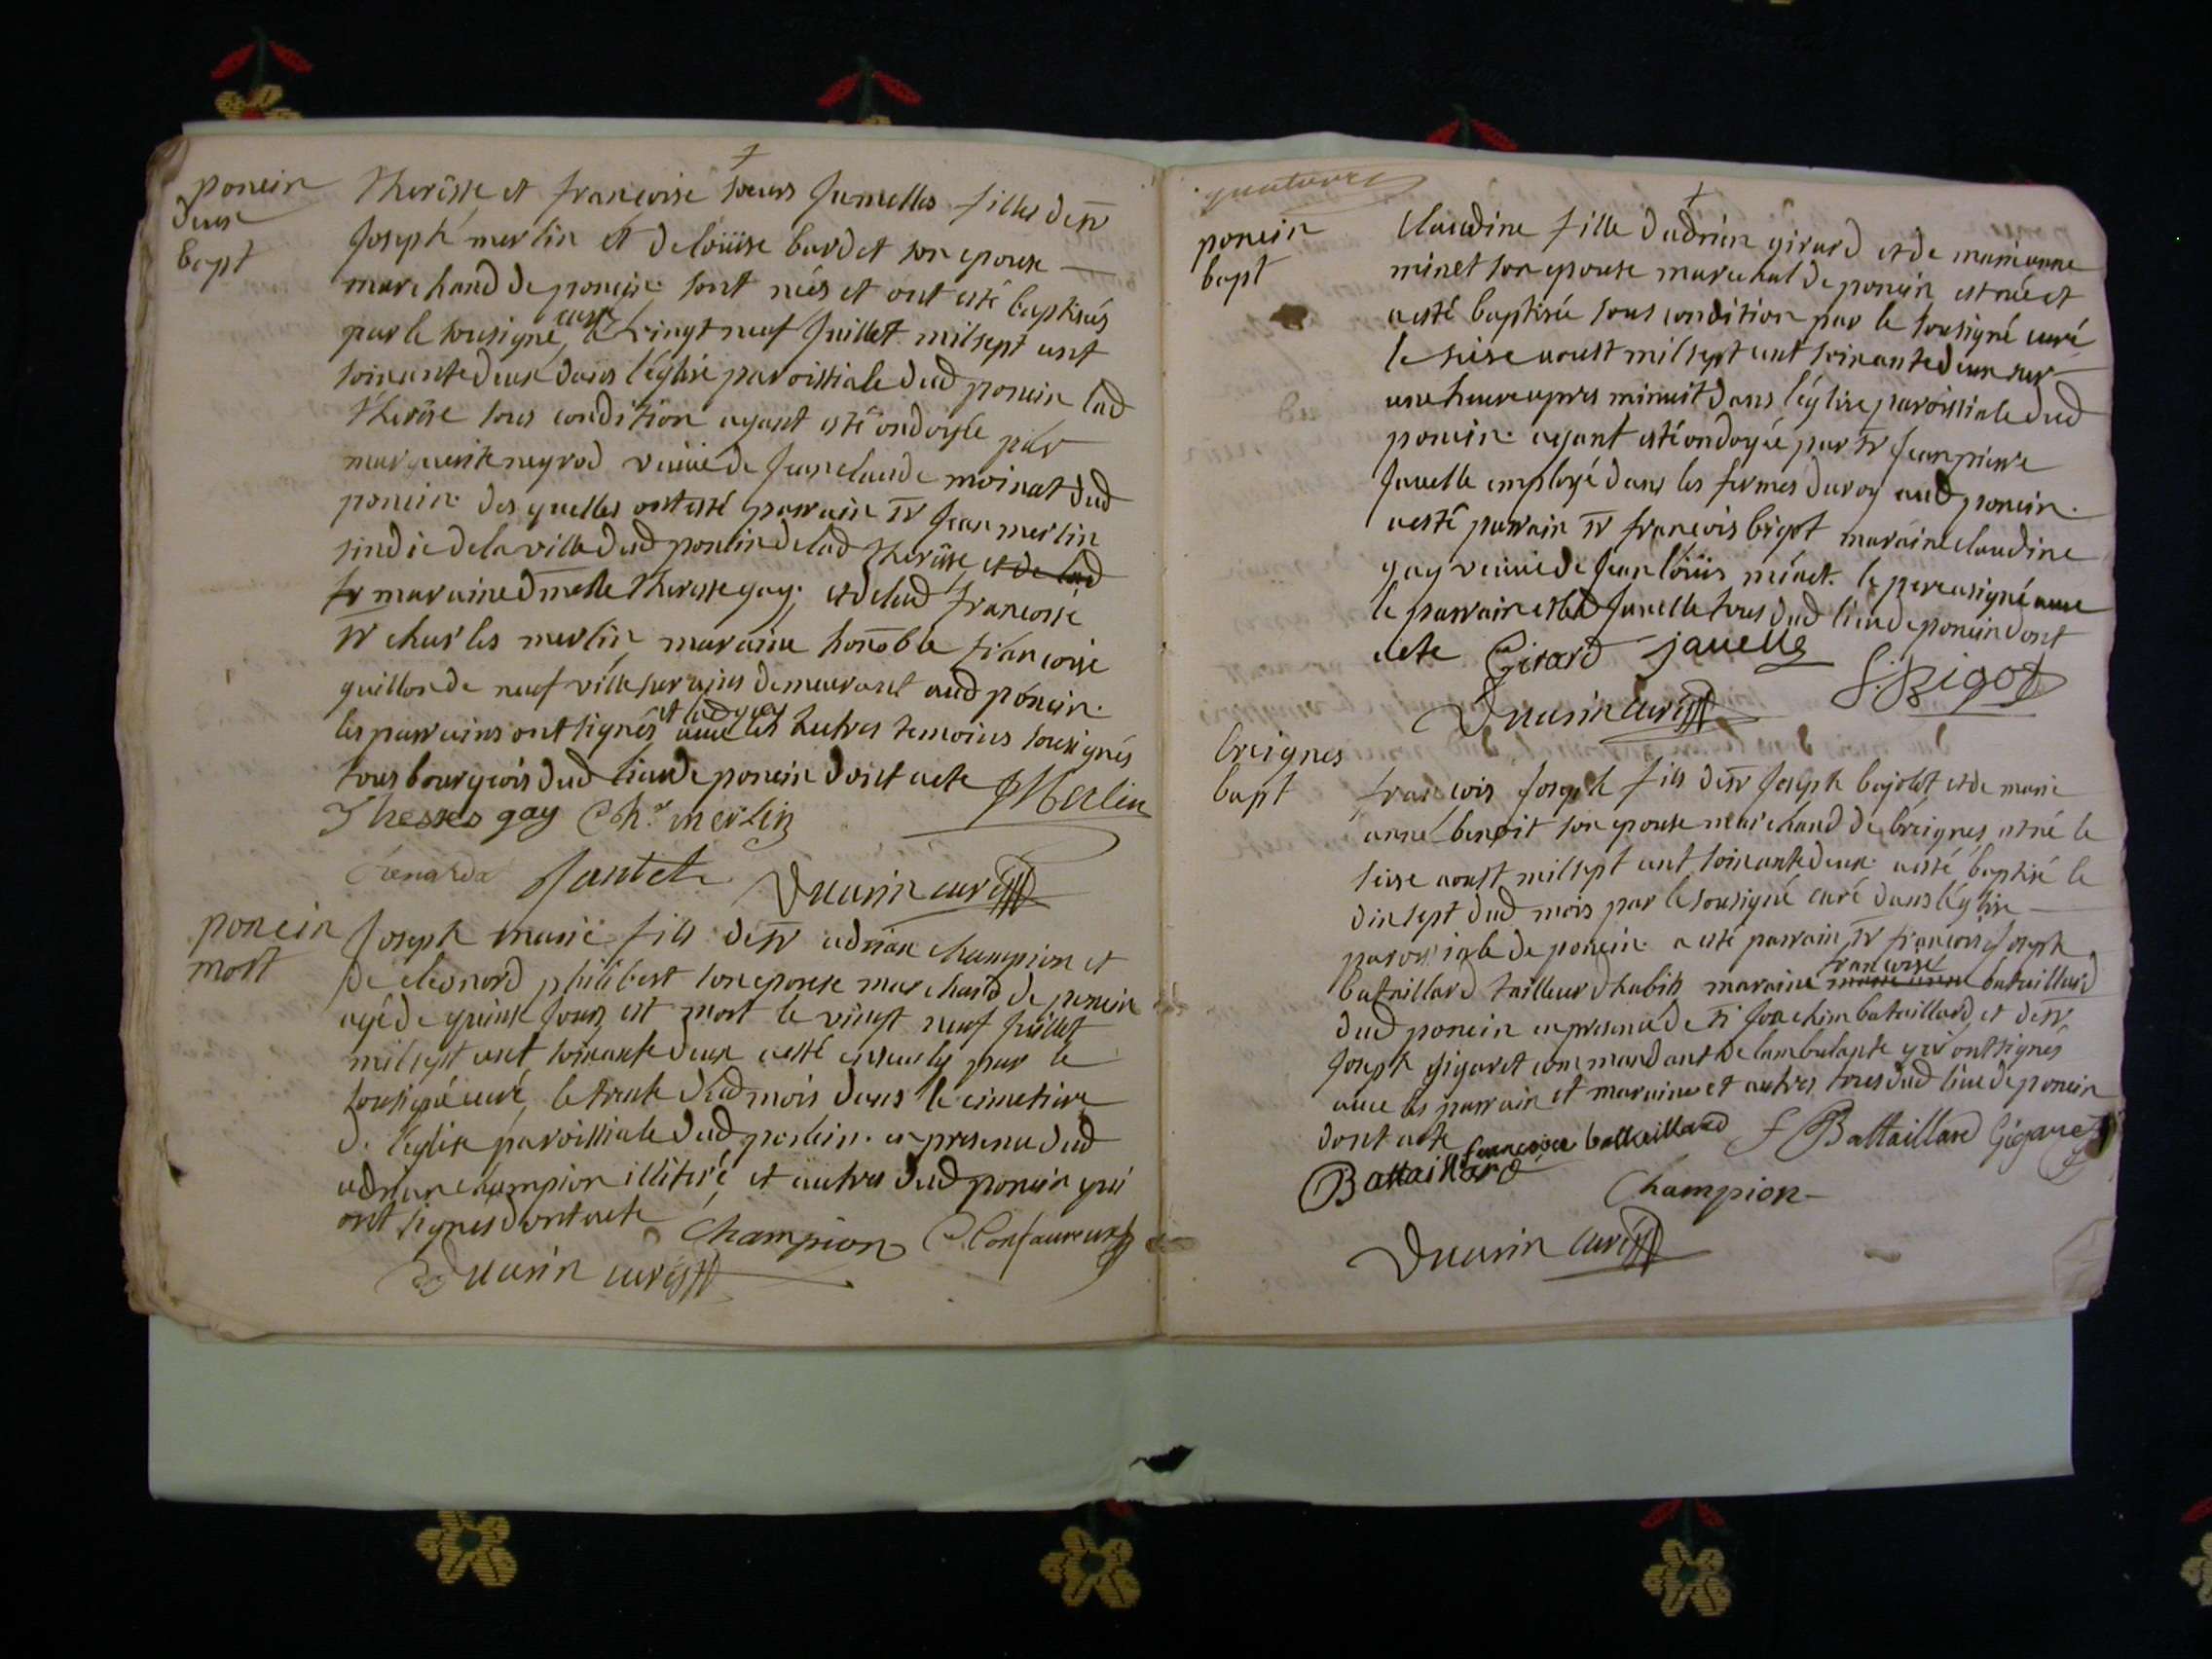 ponein
deux
bapt
Therêse et francoise soeurs Jumelles filles de sr
Joseph merlin et de loüise bardet son epouse
marchand de ponein sont neés et ont esté baptisés
par le sousigné curé le vingt neuf Juillet mil sept cent
soixante deux dans l'églisé paroissiale dud ponein lad
therêse sous condition ayant esté ondoyée par
marguerite negrod veüve de Jean claude moinat dud
ponein. des quelles ont esté parrain sr Jean merlin
sindic de la ville dud ponein de lad therêse et de lad
fr maraine dmelle therese gay. et de lad francoise
sr charles merlin maraine honoble francoise
guillon de neuf ville sur ains demeurant aud ponein.
les parrains ont signés et lad gay avec les autres temoins sousignés
tous bourgeois dud lieu de ponein dont acte JMerlin
Theres gay Chr merlin
Jantet Duurin curé
ponein
mort
Joseph marie fils de sr adrian champion et
de eleonord philibert son epouse marchand de ponein
agé de quinse Jours est mort le vingt neuf Juillet
mil sept cent soixante deux a esté ensevely par le
sousigné curé le trente dud mois dans le cimetiere
de l'église paroissiale dud ponein. en presence dud
adrian champion illitéré et autres dud ponein qui
ont signés dont acte Champion
Duurin curé
quatorze
ponein
bapt
Claudine fille d'adrien girard et de marianne
minet son epouse marechal de ponein est née et
a esté baptisée sous condition par le sousigné curé
le seise aoust mil sept cent soixante deux sur
une heure apres minuit dans l'église paroissiale dud
ponein. ayant esté ondoyée par sr Jean pierre
Javelle employé dans les fermes du roy aud ponein.
a esté parrain sr francois bigot maraine claudine
gay veüve de Jean loüis minet. le pere a signé avec
le parrain et led Javelle tous dud lieu de ponein dont
acte Girard Javelle
F. Bigot
Duurin curé
breignes
bapt
francois Joseph fils de sr Joseph bajolot et de marie
anne benoit son epouse marchand de breignes est né le
seise aoust mil sept cent soixante deux. a esté baptisé le
dix sept dud mois par le sousigné curé dans l'église
paroissiale de ponein. a esté parrain sr francois Joseph
bataillard tailleur d'habits maraine marie anne francoise bataillard
dud ponein en presence de sr Joachim bataillard et de sr
Joseph gigaret commandant de lambulante qui ont signés
avec les parrain et maraine et autres tous dud lieu de ponein
dont acte francoise battaillard F Battaillard Gigaret
Battaillard
Champion
Duurin curé